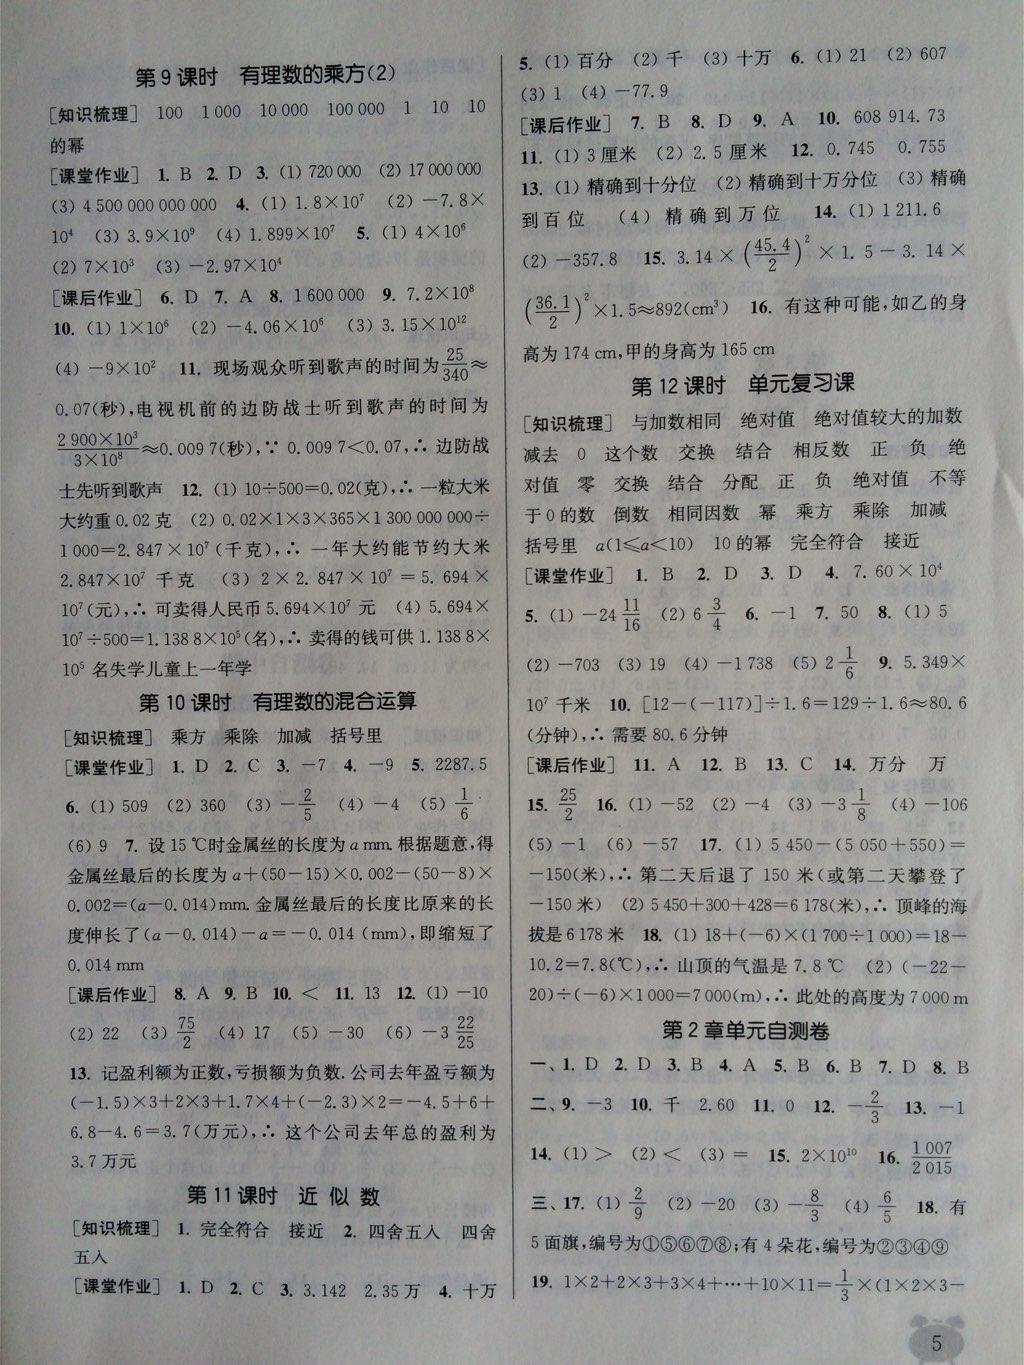 第9课时 有理数的乘方(2)
[知识梳理] 100 1 000 10 000 100 000 1 10 10
的幂
[课堂作业] 1. B 2. D 3. (1) 720 000 (2) 17 000 000
(3) 4 500 000 000 000 4. (1) 1.8×10⁷ (2) -7.8×
10⁴ (3) 3.9×10⁹ (4) 1.899×10⁷ 5. (1) 4×10⁶
(2) 7×10³ (3) -2.97×10⁴
[课后作业] 6. D 7. A 8. 1 600 000 9. 7.2×10⁸
10. (1) 1×10⁶ (2) -4.06×10⁶ (3) 3.15×10¹²
(4) -9×10² 11. 现场观众听到歌声的时间为25/340≈
0.07(秒),电视机前的边防战士听到歌声的时间为
2 900×10³/3×10⁸≈0.009 7(秒),∵ 0.009 7<0.07,∴ 边防战
士先听到歌声 12. (1) 10÷500=0.02(克),∴ 一粒大米
大约重 0.02 克 (2) 0.02×1×3×365×1 300 000 000÷
1 000=2.847×10⁷(千克),∴ 一年大约能节约大米
2.847×10⁷ 千克 (3) 2×2.847×10⁷=5.694×
10⁷(元),∴ 可卖得人民币 5.694×10⁷ 元 (4) 5.694×
10⁷÷500=1.138 8×10⁵(名),∴ 卖得的钱可供 1.138 8×
10⁵ 名失学儿童上一年学
第10课时 有理数的混合运算
[知识梳理] 乘方 乘除 加减 括号里
[课堂作业] 1. D 2. C 3. -7 4. -9 5. 2287.5
6. (1) 509 (2) 360 (3) -2/5 (4) -4 (5) 1/6
(6) 9 7. 设 15 ℃时金属丝的长度为 a mm. 根据题意,得
金属丝最后的长度为 a+(50-15)×0.002-(50-8)×
0.002=(a-0.014)mm. 金属丝最后的长度比原来的长
度伸长了(a-0.014)-a=-0.014 (mm),即缩短了
0.014 mm
[课后作业] 8. A 9. B 10. < 11. 13 12. (1) -10
(2) 22 (3) 75/2 (4) 17 (5) -30 (6) -3 22/25
13. 记盈利额为正数,亏损额为负数. 公司去年盈亏额为
(-1.5)×3+2×3+1.7×4+(-2.3)×2=-4.5+6+
6.8-4.6=3.7(万元),∴ 这个公司去年总的盈利为
3.7 万元
第11课时 近似数
[知识梳理] 1. 完全符合 接近 2. 四舍五入 四舍
五入
[课堂作业] 1. D 2. C 3. 3.142 2.35 万 4. 十万
5. (1) 百分 (2) 千 (3) 十万 6. (1) 21 (2) 607
(3) 1 (4) -77.9
[课后作业] 7. B 8. D 9. A 10. 608 914.73
11. (1) 3 厘米 (2) 2.5 厘米 12. 0.745 0.755
13. (1) 精确到十分位 (2) 精确到十万分位 (3) 精确
到百位 (4) 精确到万位 14. (1) 1 211.6
(2) -357.8 15. 3.14×(45.4/2)²×1.5-3.14×
(36.1/2)²×1.5≈892(cm³) 16. 有这种可能,如乙的身
高为 174 cm,甲的身高为 165 cm
第12课时 单元复习课
[知识梳理] 与加数相同 绝对值 绝对值较大的加数
减去 0 这个数 交换 结合 相反数 正 负 绝
对值 零 交换 结合 分配 正 负 绝对值 不等
于 0 的数 倒数 相同因数 幂 乘方 乘除 加减
括号里 a(1≤a<10) 10 的幂 完全符合 接近
[课堂作业] 1. B 2. D 3. D 4. 7.60×10⁴
5. (1) -24 11/16 (2) 6 3/4 6. -1 7. 50 8. (1) 5
(2) -703 (3) 19 (4) -1 738 (5) 2 1/6 9. 5.349×
10⁷ 千米 10. [12-(-117)]÷1.6=129÷1.6≈80.6
(分钟),∴ 需要 80.6 分钟
[课后作业] 11. A 12. B 13. C 14. 万分 万
15. 25/2 16. (1) -52 (2) -4 (3) -3 1/8 (4) -106
(5) -1 (6) -57 17. (1) 5 450-(5 050+550)=
-150(米),∴ 第二天后退了 150 米(或第二天攀登了
-150 米) (2) 5 450+300+428=6 178(米),∴ 顶峰的海
拔是 6 178 米 18. (1) 18+(-6)×(1 700÷1 000)=18-
10.2=7.8(℃),∴ 山顶的气温是 7.8 ℃ (2) (-22-
20)÷(-6)×1 000=7 000(m),∴ 此处的高度为 7 000 m
第2章单元自测卷
一、1. D 2. D 3. B 4. A 5. B 6. B 7. D 8. B
二、9. -3 10. 千 2.60 11. 0 12. -2/3 13. -1
14. (1) > (2) < (3) = 15. 2×10¹⁰ 16. 1 007/2 015
三、17. (1) 2/9 (2) -20 (3) -8/3 (4) 6/5 18. 有
5 面旗,编号为①⑤⑥⑦⑧;有 4 朵花,编号为②③④⑨
19. 1×2+2×3+3×4+…+10×11=1/3×(1×2×3-
5